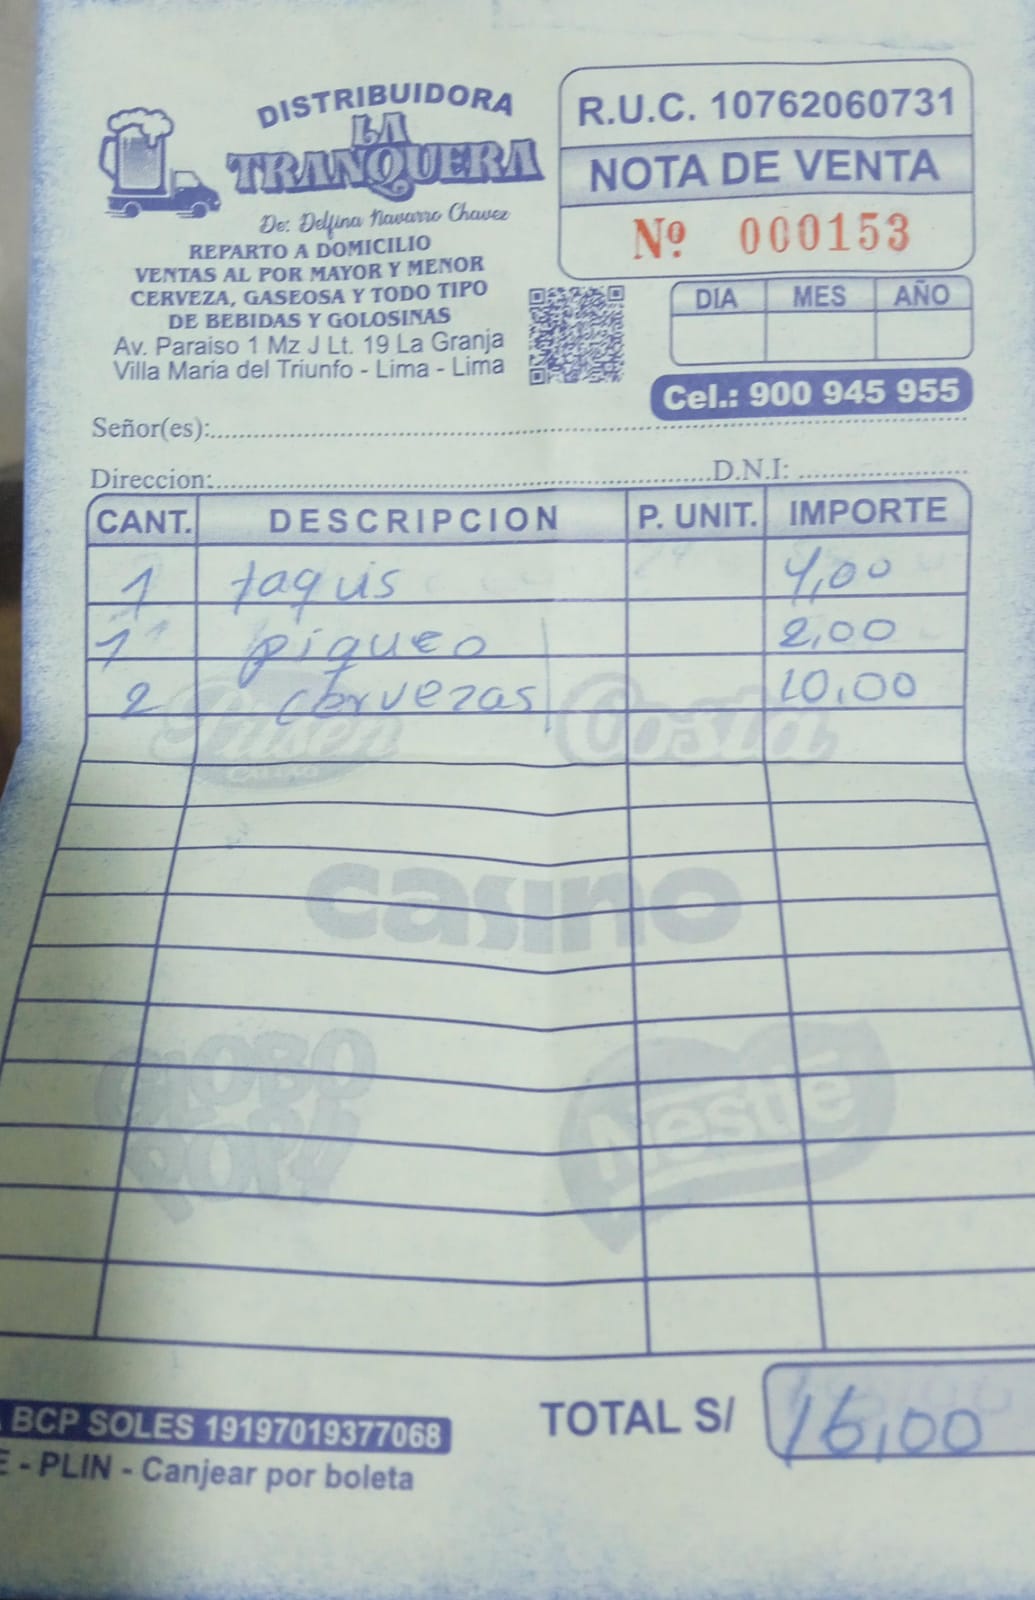 DISTRIBUIDORA
LA
TRANQUERA
De: Delfina Navarro Chavez
REPARTO A DOMICILIO
VENTAS AL POR MAYOR Y MENOR
CERVEZA, GASEOSA Y TODO TIPO
DE BEBIDAS Y GOLOSINAS
Av. Paraiso 1 Mz J Lt. 19 La Granja
Villa Maria del Triunfo - Lima - Lima
R.U.C. 10762060731
NOTA DE VENTA
Nº 000153
DIA MES AÑO
Cel.: 900 945 955
Señor(es):
Direccion: D.N.I:
CANT. DESCRIPCION P. UNIT. IMPORTE
1 taquis 4,00
1 piqueo 2,00
2 cervezas 10,00
Pilsen Costa
CALLAO
casino
GLOBO
POP
Nestlé
BCP SOLES 19197019377068
E - PLIN - Canjear por boleta
TOTAL S/ 16,00